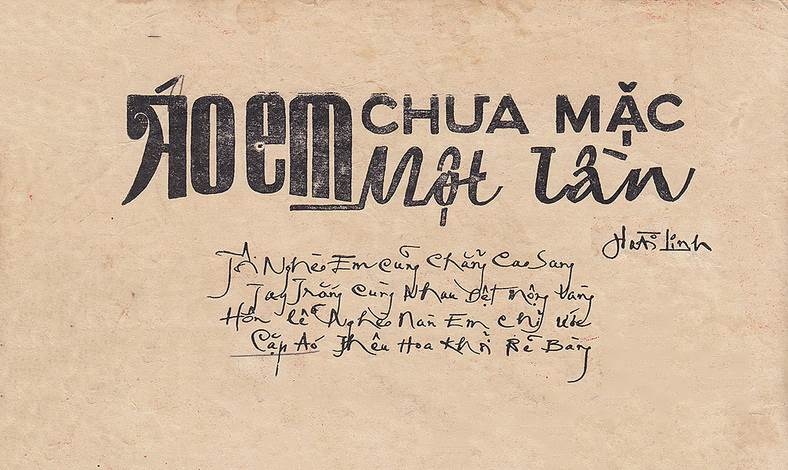 Áo em CHƯA MẶC
Một lần
Hoài Linh
Tôi Nghèo Em Cũng Chẳng Cao Sang
Tay Trắng Cùng Nhau Dệt Mộng Vàng
Hôn lễ Nghèo Nàn Em Chỉ ước
Cặp Áo Thêu Hoa Khỏi Bẽ Bàng